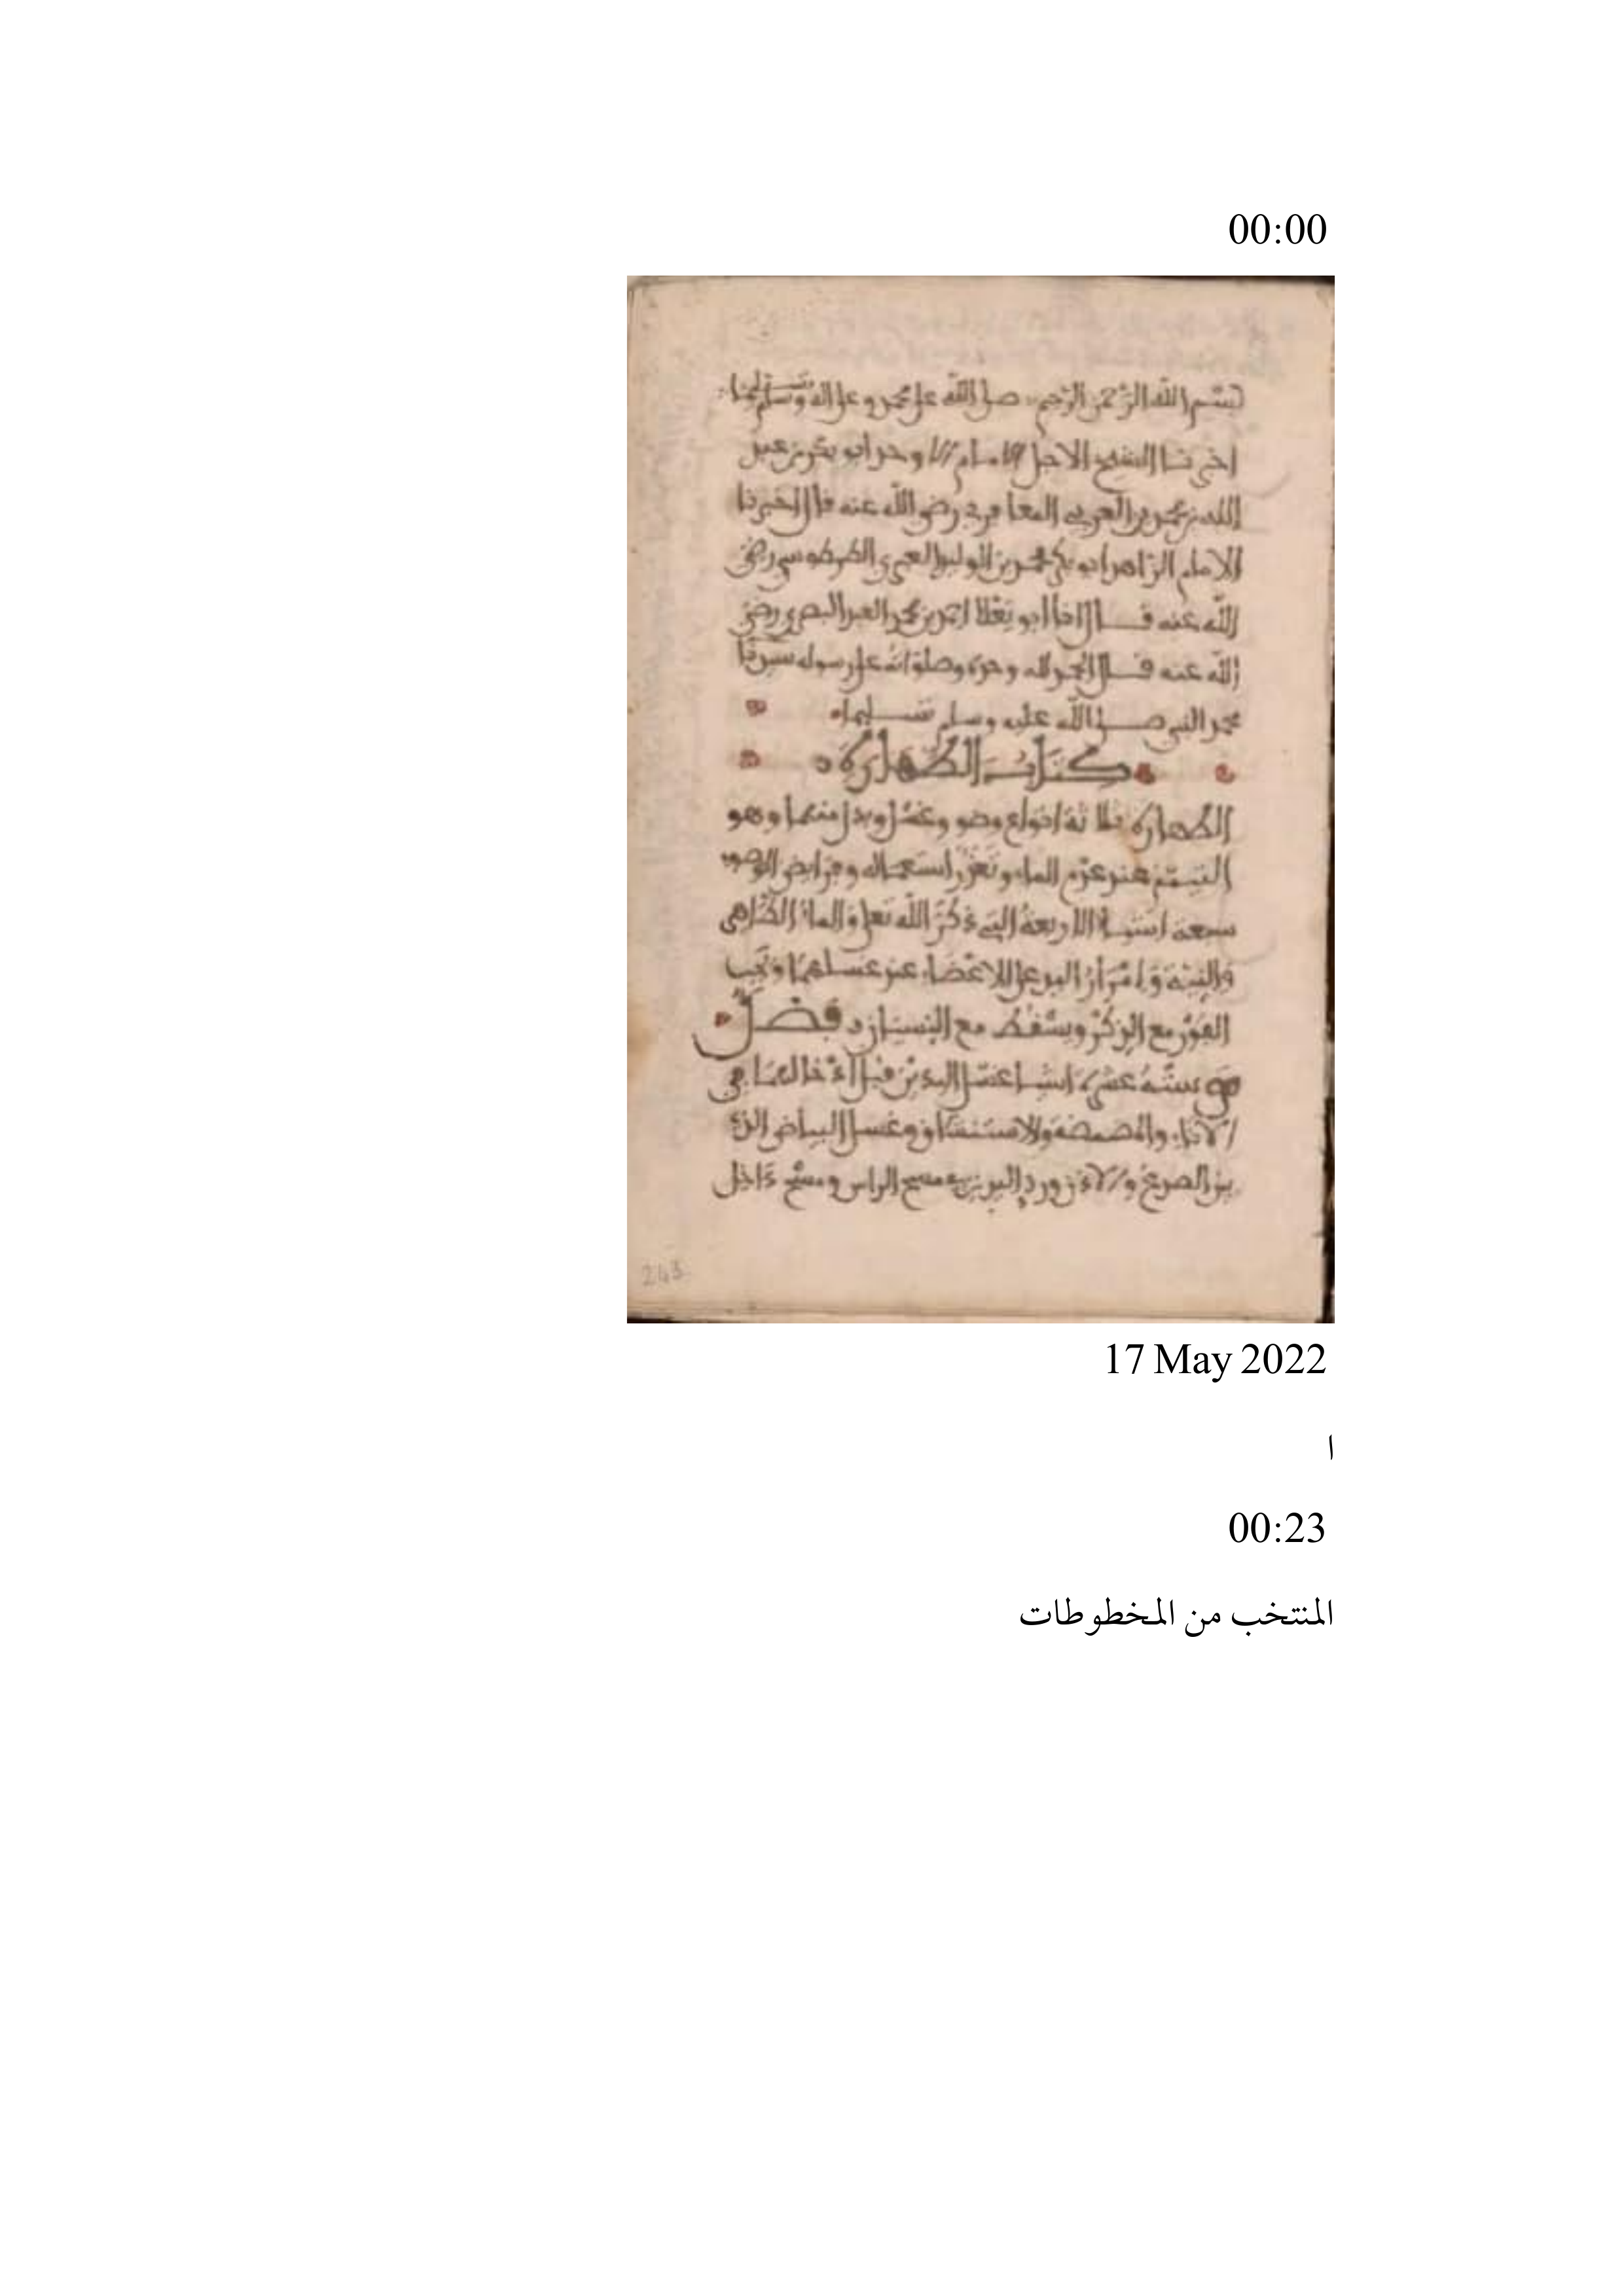 00:00
بسم الله الرحمن الرحيم صلى الله على محمد وعلى اله وسلم تسليما
اخبرنا الشيخ الاجل الامام الاوحد ابو بكر بن عبد
الله بن محمد بن العربي المعافري رضي الله عنه قال اخبرنا
الامام الزاهد ابو بكر محمد بن الوليد الفهري الطرطوشي رضي
الله عنه قال انا ابو يعلا احمد بن محمد العبدي البصري رضي
الله عنه قال الحمد لله وحده وصلواته على رسوله سيدنا
محمد النبي صلى الله عليه وسلم تسليما
كتاب الطهارة
الطهارة ثلاثة انواع وضو وغسل وبدل منهما وهو
التيمم عند عدم الماء وتعذر استعماله وفرايض الوضو
سبعة اشيا الاربعة التي ذكر الله تعلى والماء الطاهر
والنية وامرار اليد على الاعضاء عند غسلهما ويجب
الفور مع الذكر ويسقط مع النسيان فصل
ستة عشر اشيا غسل اليدين قبل ادخالهما في
الاناء والمضمضة والاستنشاق وغسل البياض الذي
بين الصدغ والاذن ورد اليدين في مسح الراس ومسح داخل
243
17 May 2022
ا
00:23
المنتخب من المخطوطات